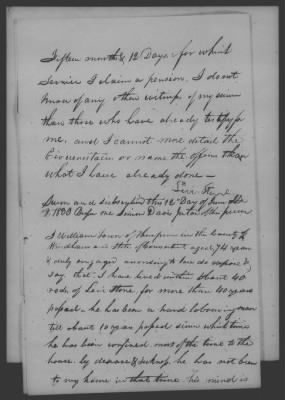 Fifteen months & 12 Days. for which
Service I claim a pension, I do not
know of any other witness of my own
than those who have already to
me, and I cannot more detail the
Circumstances or name the officers than
what I have already done —
Levi Stone
Sworn and subscribed this 12th Day of
Before me Simon Davis
I William of Thompson in the County of
Windham and State of Connecticut aged 74 years
& duly engaged according to law do depose &
say that I have lived within about 40
rods of Levi Stone for more than 40 years
passed. he has been a hard labouring man
till about 10 years passed since which time
he has been confined most of the time to the
house by disease & sickness. he has not been
to my home in that time. his mind is